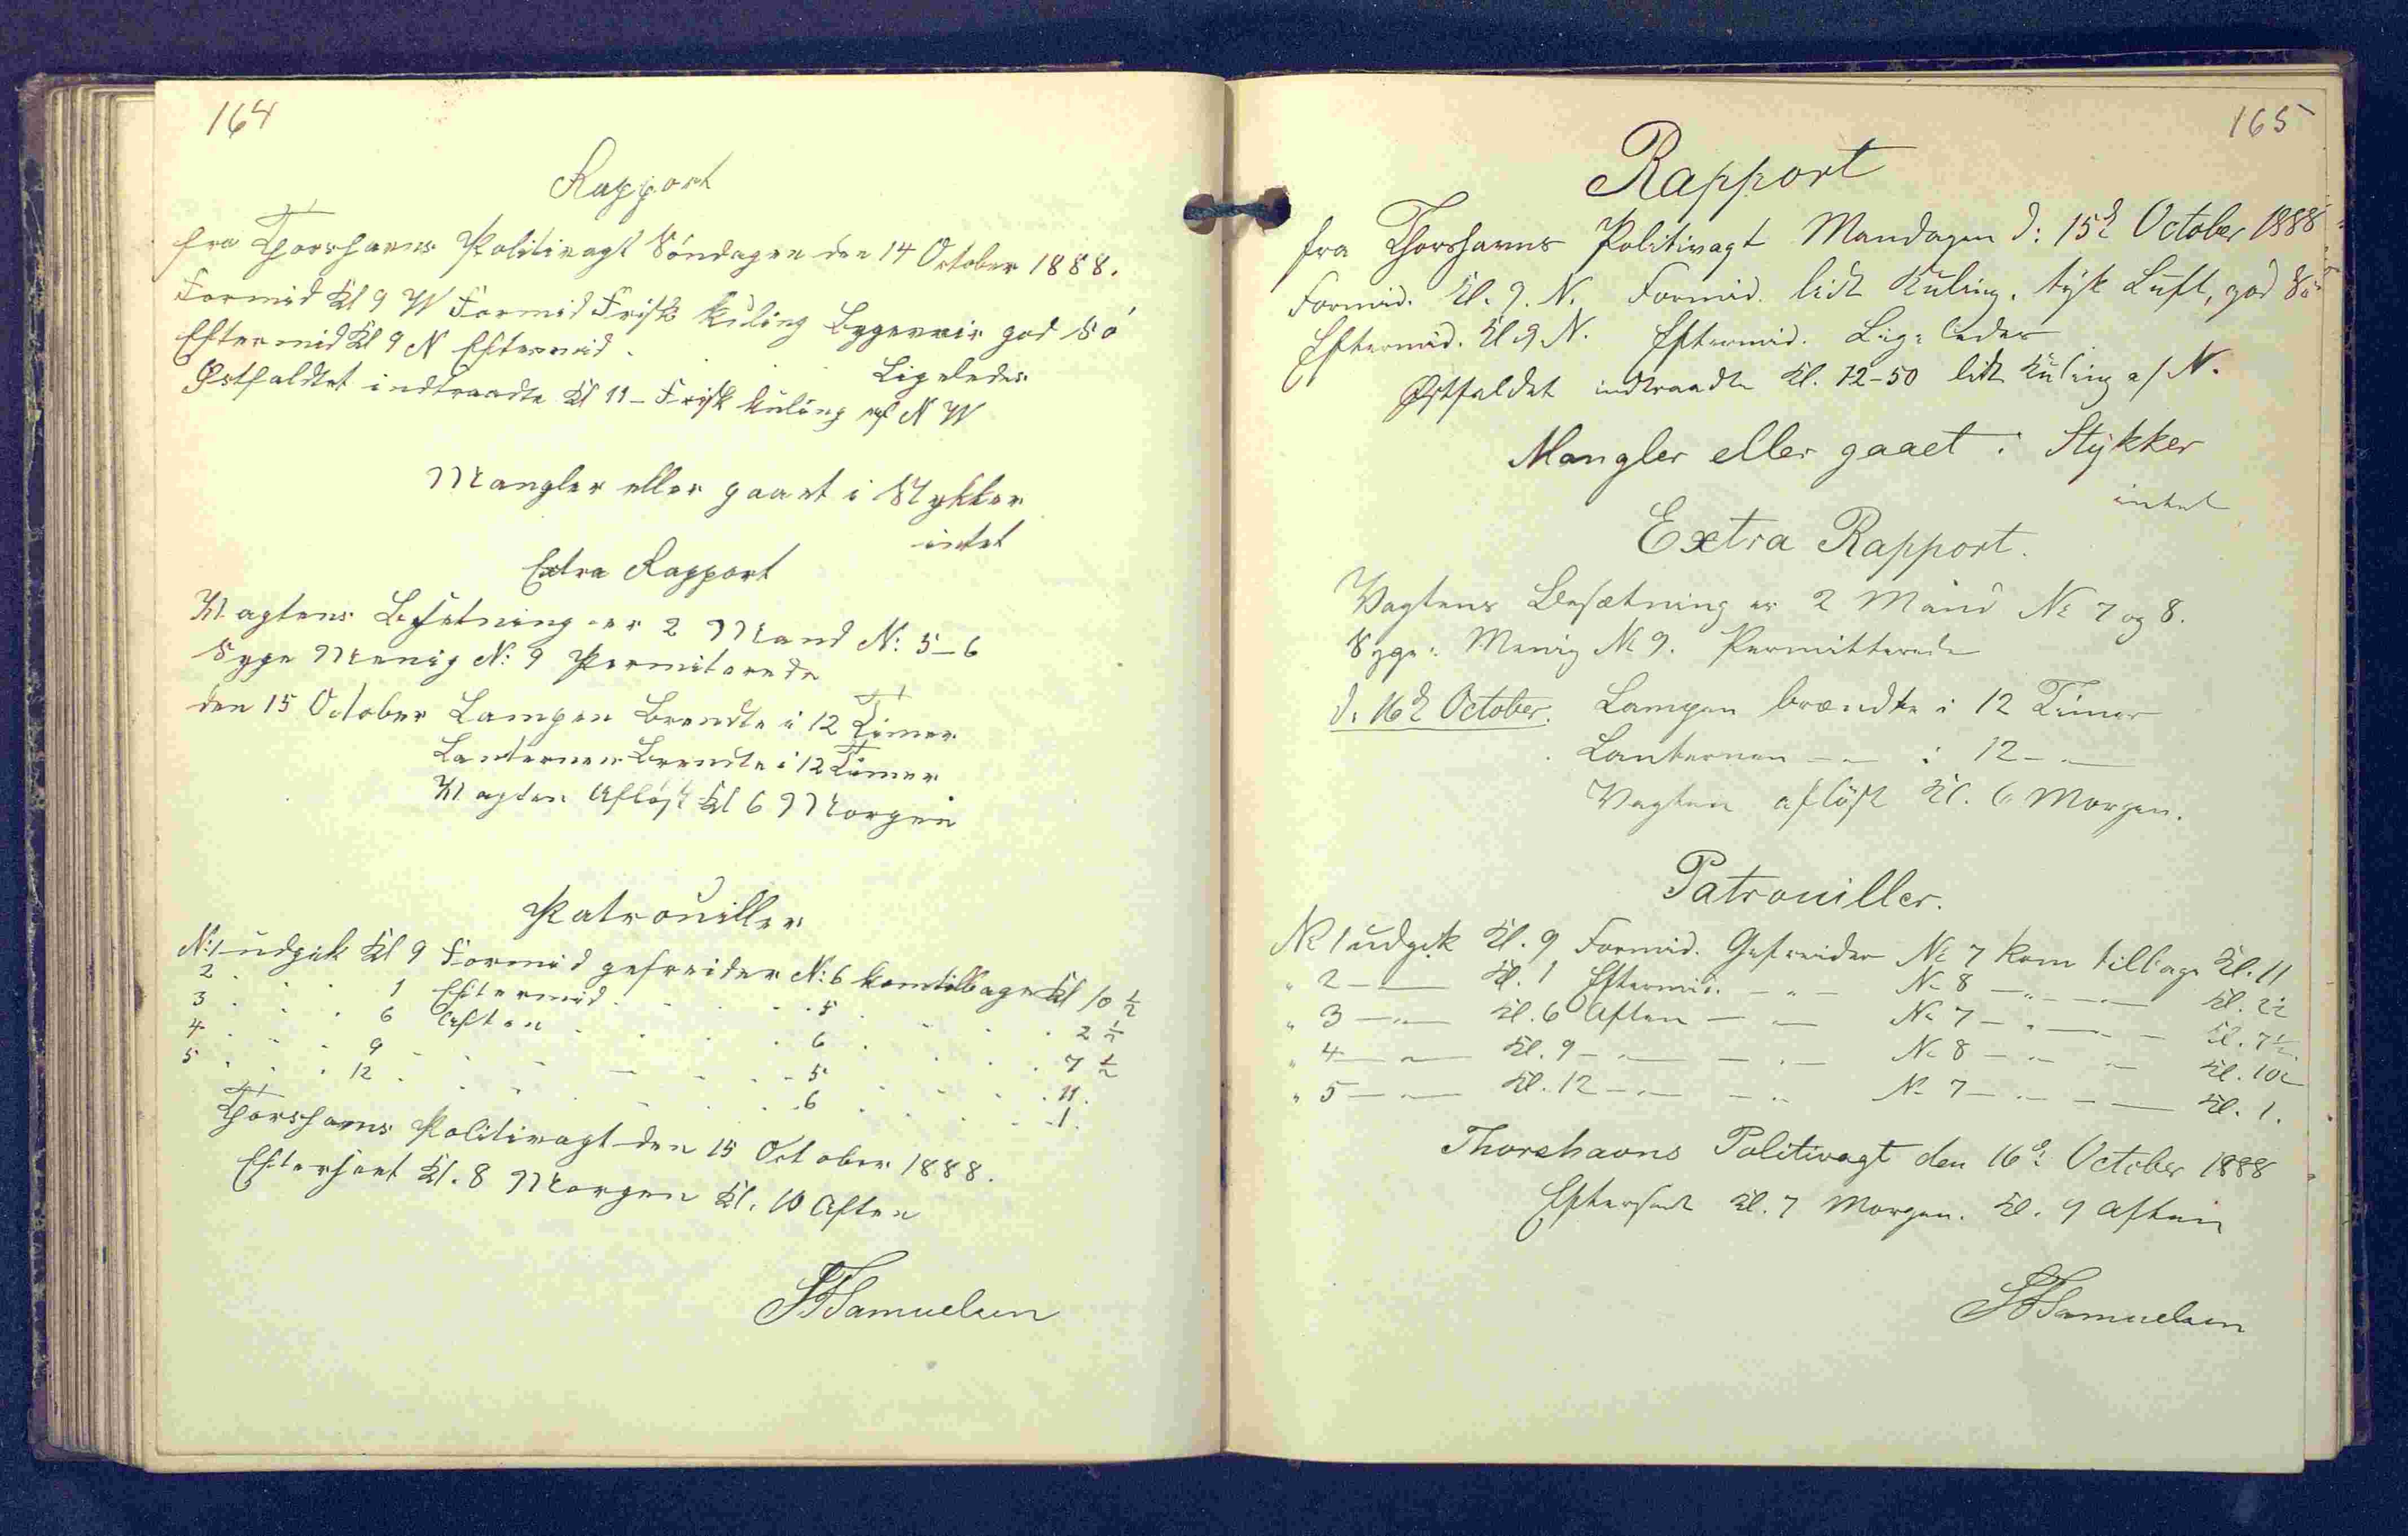 164
Rapport
fra Thorshavns Politivagt Söndagen den 14 October 1888.
Formid Kl 9 W Formid Frisk Kuling Bygeveir god Sö
Eftermid Kl 9 N Eftermid . . . Ligeledes
Østfaldet indtraadte Kl 11 - Frisk kuling af N W
Mangler eller gaaet i Stykker
intet
Extra Rapport
Vagtens Besetning er 2 Mand N: 5-6
Syge Menig N: 9 Permiterede
den 15 October Lampen Brendte i 12 Timer
Lanternen Brendte i 12 Timer
Vagten Aflöst Kl 6 Morgen
Patrouiller
N: 1 udgik Kl 9 Formid gefreider N: 6 kom tilbage Kl 10 ½
2 . . . 1 Eftermid . . . . 5 . . . . 2 ½
3 . . . 6 Aften . . . . 6 . . . . 7 ½
4 . . . 9 . . . . 5 . . . . 11.
5 . . . 12 . . . . 6 . . . . 1.
Thorshavns Politivagt den 15 October 1888.
Efterseet Kl. 8 Morgen Kl. 10 Aften
Samuelsen
165
Rapport
fra Thorshavns Politivagt Mandagen d: 15d October 1888
Formid. Kl. 9. N. Formid. lidt Kuling. tyk Luft, god Sö
Eftermid. Kl 9 N. Eftermid. Lige ledes
Østfaldet indtraadte Kl. 12-50 lidt Kuling af N.
Mangler eller gaaet i Stykker
intet
Extra Rapport.
Vagtens Besætning er 2 Mand No 7 og 8.
Syge: Menig No 9. Permitterede
d: 16d October. Lampen brændte i 12 Timer
Lanternen - - i 12 - -
Vagten aflöst Kl. 6 Morgen.
Patrouiller.
No 1 udgik Kl. 9 Formid. Gefreider No 7 kom tilbage Kl. 11
" 2 — Kl. 1 Eftermid. - " - No 8 - " - - Kl. 2½
" 3 - " - Kl. 6 Aften - " - No 7 - " - - Kl. 7½.
" 4 - " - Kl. 9 - " - - " - No 8 - " - - Kl. 10½
" 5 - " - Kl. 12 - " - - " - No 7 - " - - Kl. 1.
Thorshavns Politivagt den 16d: October 1888
Efterseet Kl. 7 Morgen. Kl. 9 Aften
Samuelsen